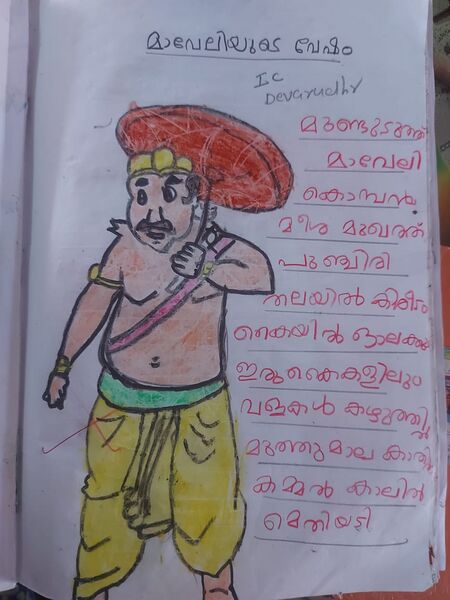 മാവേലിയുടെ വേഷം
I C
Devarudhr
മുണ്ടുടുത്ത്
മാവേലി
കൊമ്പൻ
മീശ മുഖത്ത്
പുഞ്ചിരി
തലയിൽ കിരീടം
കൈയിൽ ഓലക്കു
ഇരു കൈകളിലും
വളകൾ കഴുത്തി
മുത്തുമാല കാതി
കമ്മൽ കാലിൽ
മെതിയടി